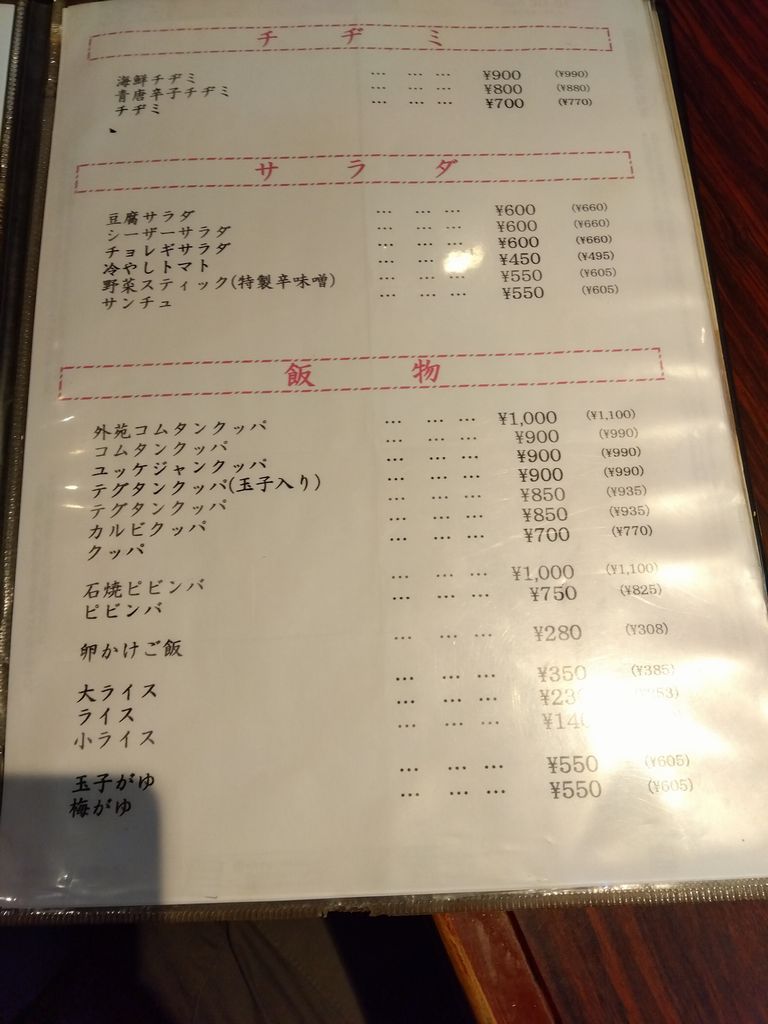 チヂミ
海鮮チヂミ … … … ¥900 (¥990)
青唐辛子チヂミ … … … ¥800 (¥880)
チヂミ … … … ¥700 (¥770)
サラダ
豆腐サラダ … … … ¥600 (¥660)
シーザーサラダ … … … ¥600 (¥660)
チョレギサラダ … … … ¥600 (¥660)
冷やしトマト … … … ¥450 (¥495)
野菜スティック(特製辛味噌) … … … ¥550 (¥605)
サンチュ … … … ¥550 (¥605)
飯物
外苑コムタンクッパ … … … ¥1,000 (¥1,100)
コムタンクッパ … … … ¥900 (¥990)
ユッケジャンクッパ … … … ¥900 (¥990)
テグタンクッパ(玉子入り) … … … ¥900 (¥990)
テグタンクッパ … … … ¥850 (¥935)
カルビクッパ … … … ¥850 (¥935)
クッパ … … … ¥700 (¥770)
石焼ピビンバ … … … ¥1,000 (¥1,100)
ピビンバ … … … ¥750 (¥825)
卵かけご飯 … … … ¥280 (¥308)
大ライス … … … ¥350 (¥385)
ライス … … …
小ライス … … …
玉子がゆ … … … ¥550 (¥605)
梅がゆ … … … ¥550 (¥605)